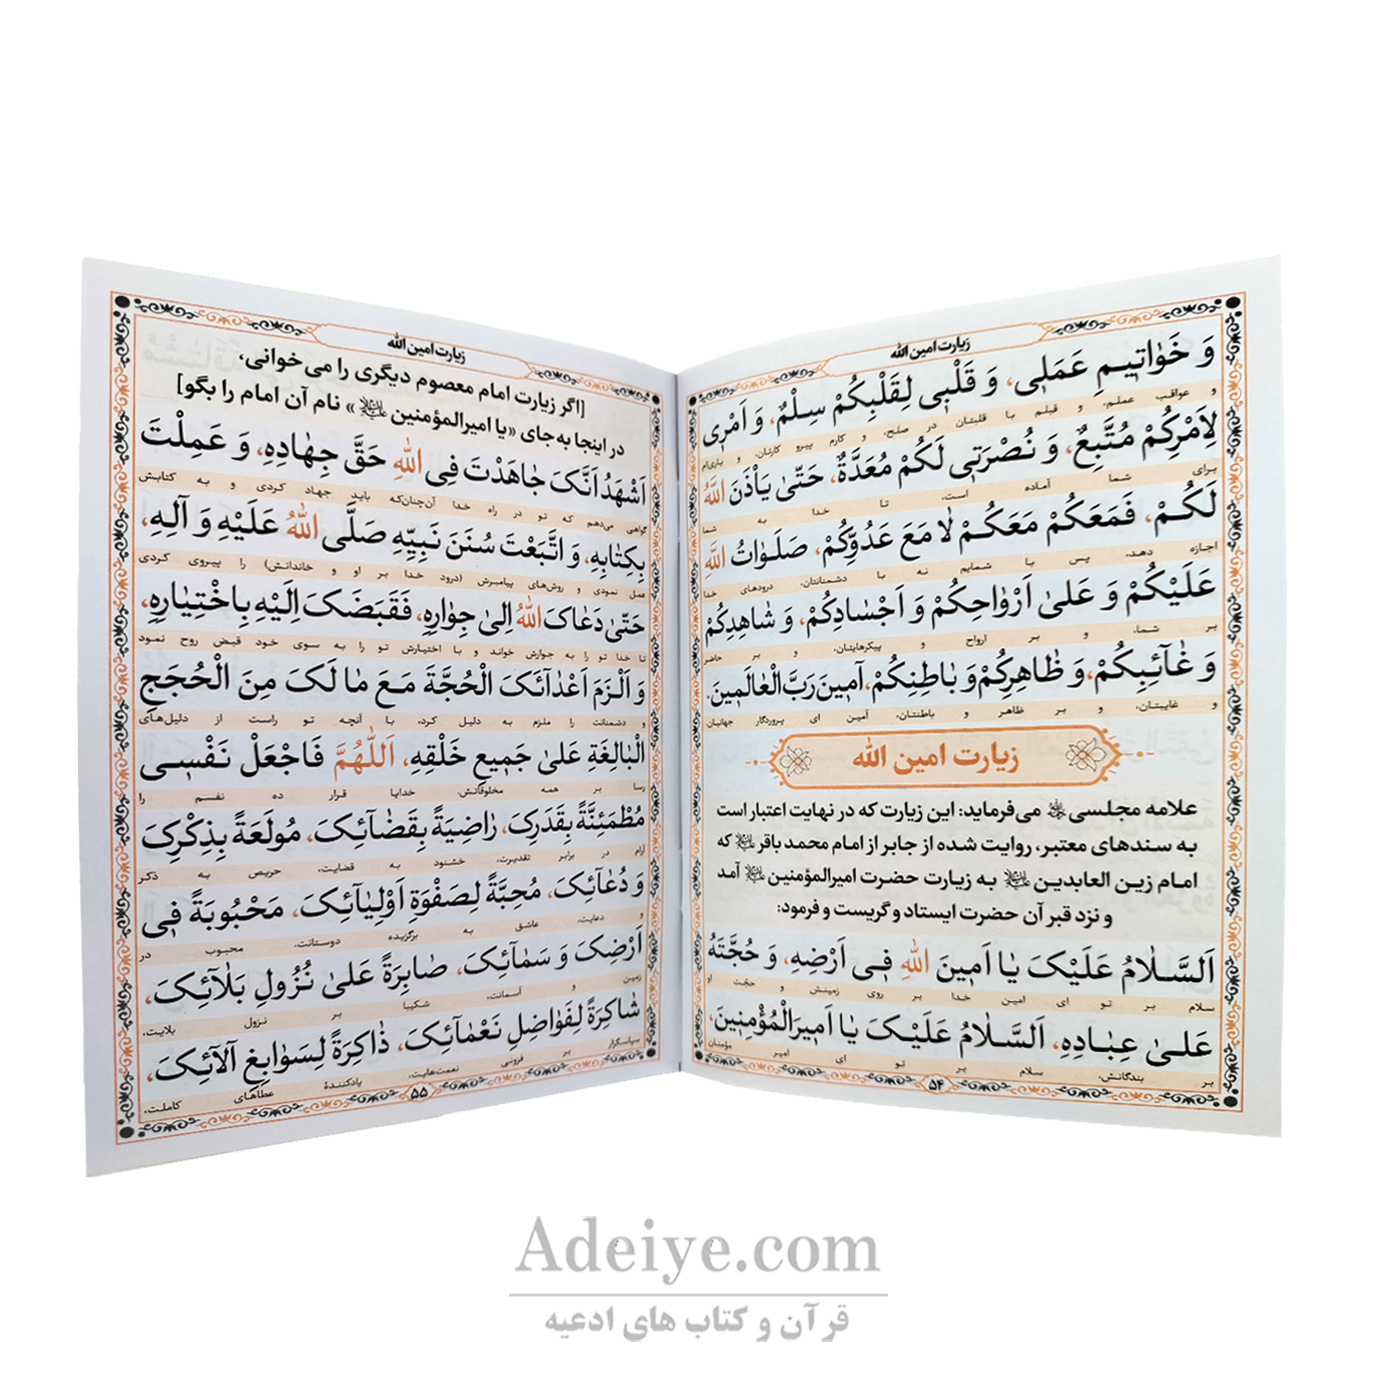 زیارت امین الله
وَ خَوٰاتِیمِ عَمَلِی، وَ قَلْبِی لِقَلْبِکُمْ سِلْمٌ، وَ اَمْرِی
و عواقب عملم، و قبلم با قلبتان در صلح، و کارم پیرو کارتان، و یاری‌ام
لِاَمْرِکُمْ مُتَّبِعٌ، وَ نُصْرَتِی لَکُمْ مُعَدَّةٌ، حَتّیٰ یَأْذَنَ اللَّهُ
برای شما آماده است، تا خدا به شما
لَکُمْ، فَمَعَکُمْ مَعَکُمْ لٰا مَعَ عَدُوِّکُمْ، صَلَوٰاتُ اللَّهِ
اجازه دهد، پس با شمایم نه با دشمنانتان، درودهای خدا
عَلَیْکُمْ وَ عَلیٰ اَرْوٰاحِکُمْ وَ اَجْسٰادِکُمْ، وَ شٰاهِدِکُمْ
بر شما، و بر ارواح و پیکرهایتان، و بر حاضر
وَ غٰآئِبِکُمْ، وَ ظٰاهِرِکُمْ وَ بٰاطِنِکُمْ، آمِینَ رَبَّ الْعٰالَمِینَ.
و غایبتان، و بر ظاهر و باطنتان، آمین ای پروردگار جهانیان.
زیارت امین الله
علامه مجلسی می‌فرماید: این زیارت که در نهایت اعتبار است
به سندهای معتبر، روایت شده از جابر از امام محمد باقر که
امام زین العابدین به زیارت حضرت امیرالمؤمنین آمد
و نزد قبر آن حضرت ایستاد و گریست و فرمود:
اَلسَّلٰامُ عَلَیْکَ یٰا اَمِینَ اللهِ فِی اَرْضِهِ، وَ حُجَّتَهُ
سلام بر تو ای امین خدا بر روی زمینش و حجّت او
عَلیٰ عِبٰادِهِ، اَلسَّلٰامُ عَلَیْکَ یٰا اَمِیرَالْمُؤْمِنِینَ،
بر بندگانش، سلام بر تو ای امیر مؤمنان
۵۴
زیارت امین الله
[اگر زیارت امام معصوم دیگری را می‌خوانی،
در اینجا به‌جای «یا امیرالمؤمنین» نام آن امام را بگو]
اَشْهَدُ اَنَّکَ جٰاهَدْتَ فِی اللهِ حَقَّ جِهٰادِهِ، وَ عَمِلْتَ
گواهی می‌دهم که تو در راه خدا آن‌چنان‌که باید جهاد کردی و به کتابش
بِکِتٰابِهِ، وَ اتَّبَعْتَ سُنَنَ نَبِیِّهِ صَلَّی اللهُ عَلَیْهِ وَ آلِهِ،
عمل نمودی و روش‌های پیامبرش (درود خدا بر او و خاندانش) را پیروی کردی
حَتّیٰ دَعٰاکَ اللهُ اِلیٰ جِوٰارِهِ، فَقَبَضَکَ اِلَیْهِ بِاخْتِیٰارِهِ،
تا خدا تو را به جوارش خواند و با اختیارش تو را به سوی خود قبض روح نمود
وَ اَلْزَمَ اَعْدٰآئَکَ الْحُجَّةَ مَعَ مٰا لَکَ مِنَ الْحُجَجِ
و دشمنانت را ملزم به دلیل کرد، با آنچه تو راست از دلیل‌های
الْبٰالِغَةِ عَلیٰ جَمِیعِ خَلْقِهِ، اَللّٰهُمَّ فَاجْعَلْ نَفْسِی
رسا بر همه مخلوقاتش، خدایا قرار ده نفسم را
مُطْمَئِنَّةً بِقَدَرِکَ، رٰاضِیَةً بِقَضٰآئِکَ، مُولَعَةً بِذِکْرِکَ
آرام در برابر تقدیرت، خشنود به قضایت، حریص به ذکر
وَ دُعٰآئِکَ، مُحِبَّةً لِصَفْوَةِ اَوْلِیٰآئِکَ، مَحْبُوبَةً فِی
و دعایت، عاشق به برگزیده دوستانت، محبوب در
اَرْضِکَ وَ سَمٰآئِکَ، صٰابِرَةً عَلیٰ نُزُولِ بَلٰآئِکَ،
زمین و آسمانت، شکیبا بر نزول بلایت،
شٰاکِرَةً لِفَوٰاضِلِ نَعْمٰآئِکَ، ذٰاکِرَةً لِسَوٰابِغِ آلآئِکَ،
سپاسگزار بر فزونی نعمت‌هایت، یادکنندۀ عطاهای کاملت،
۵۵
Adeiye.com
قرآن و کتاب های ادعیه